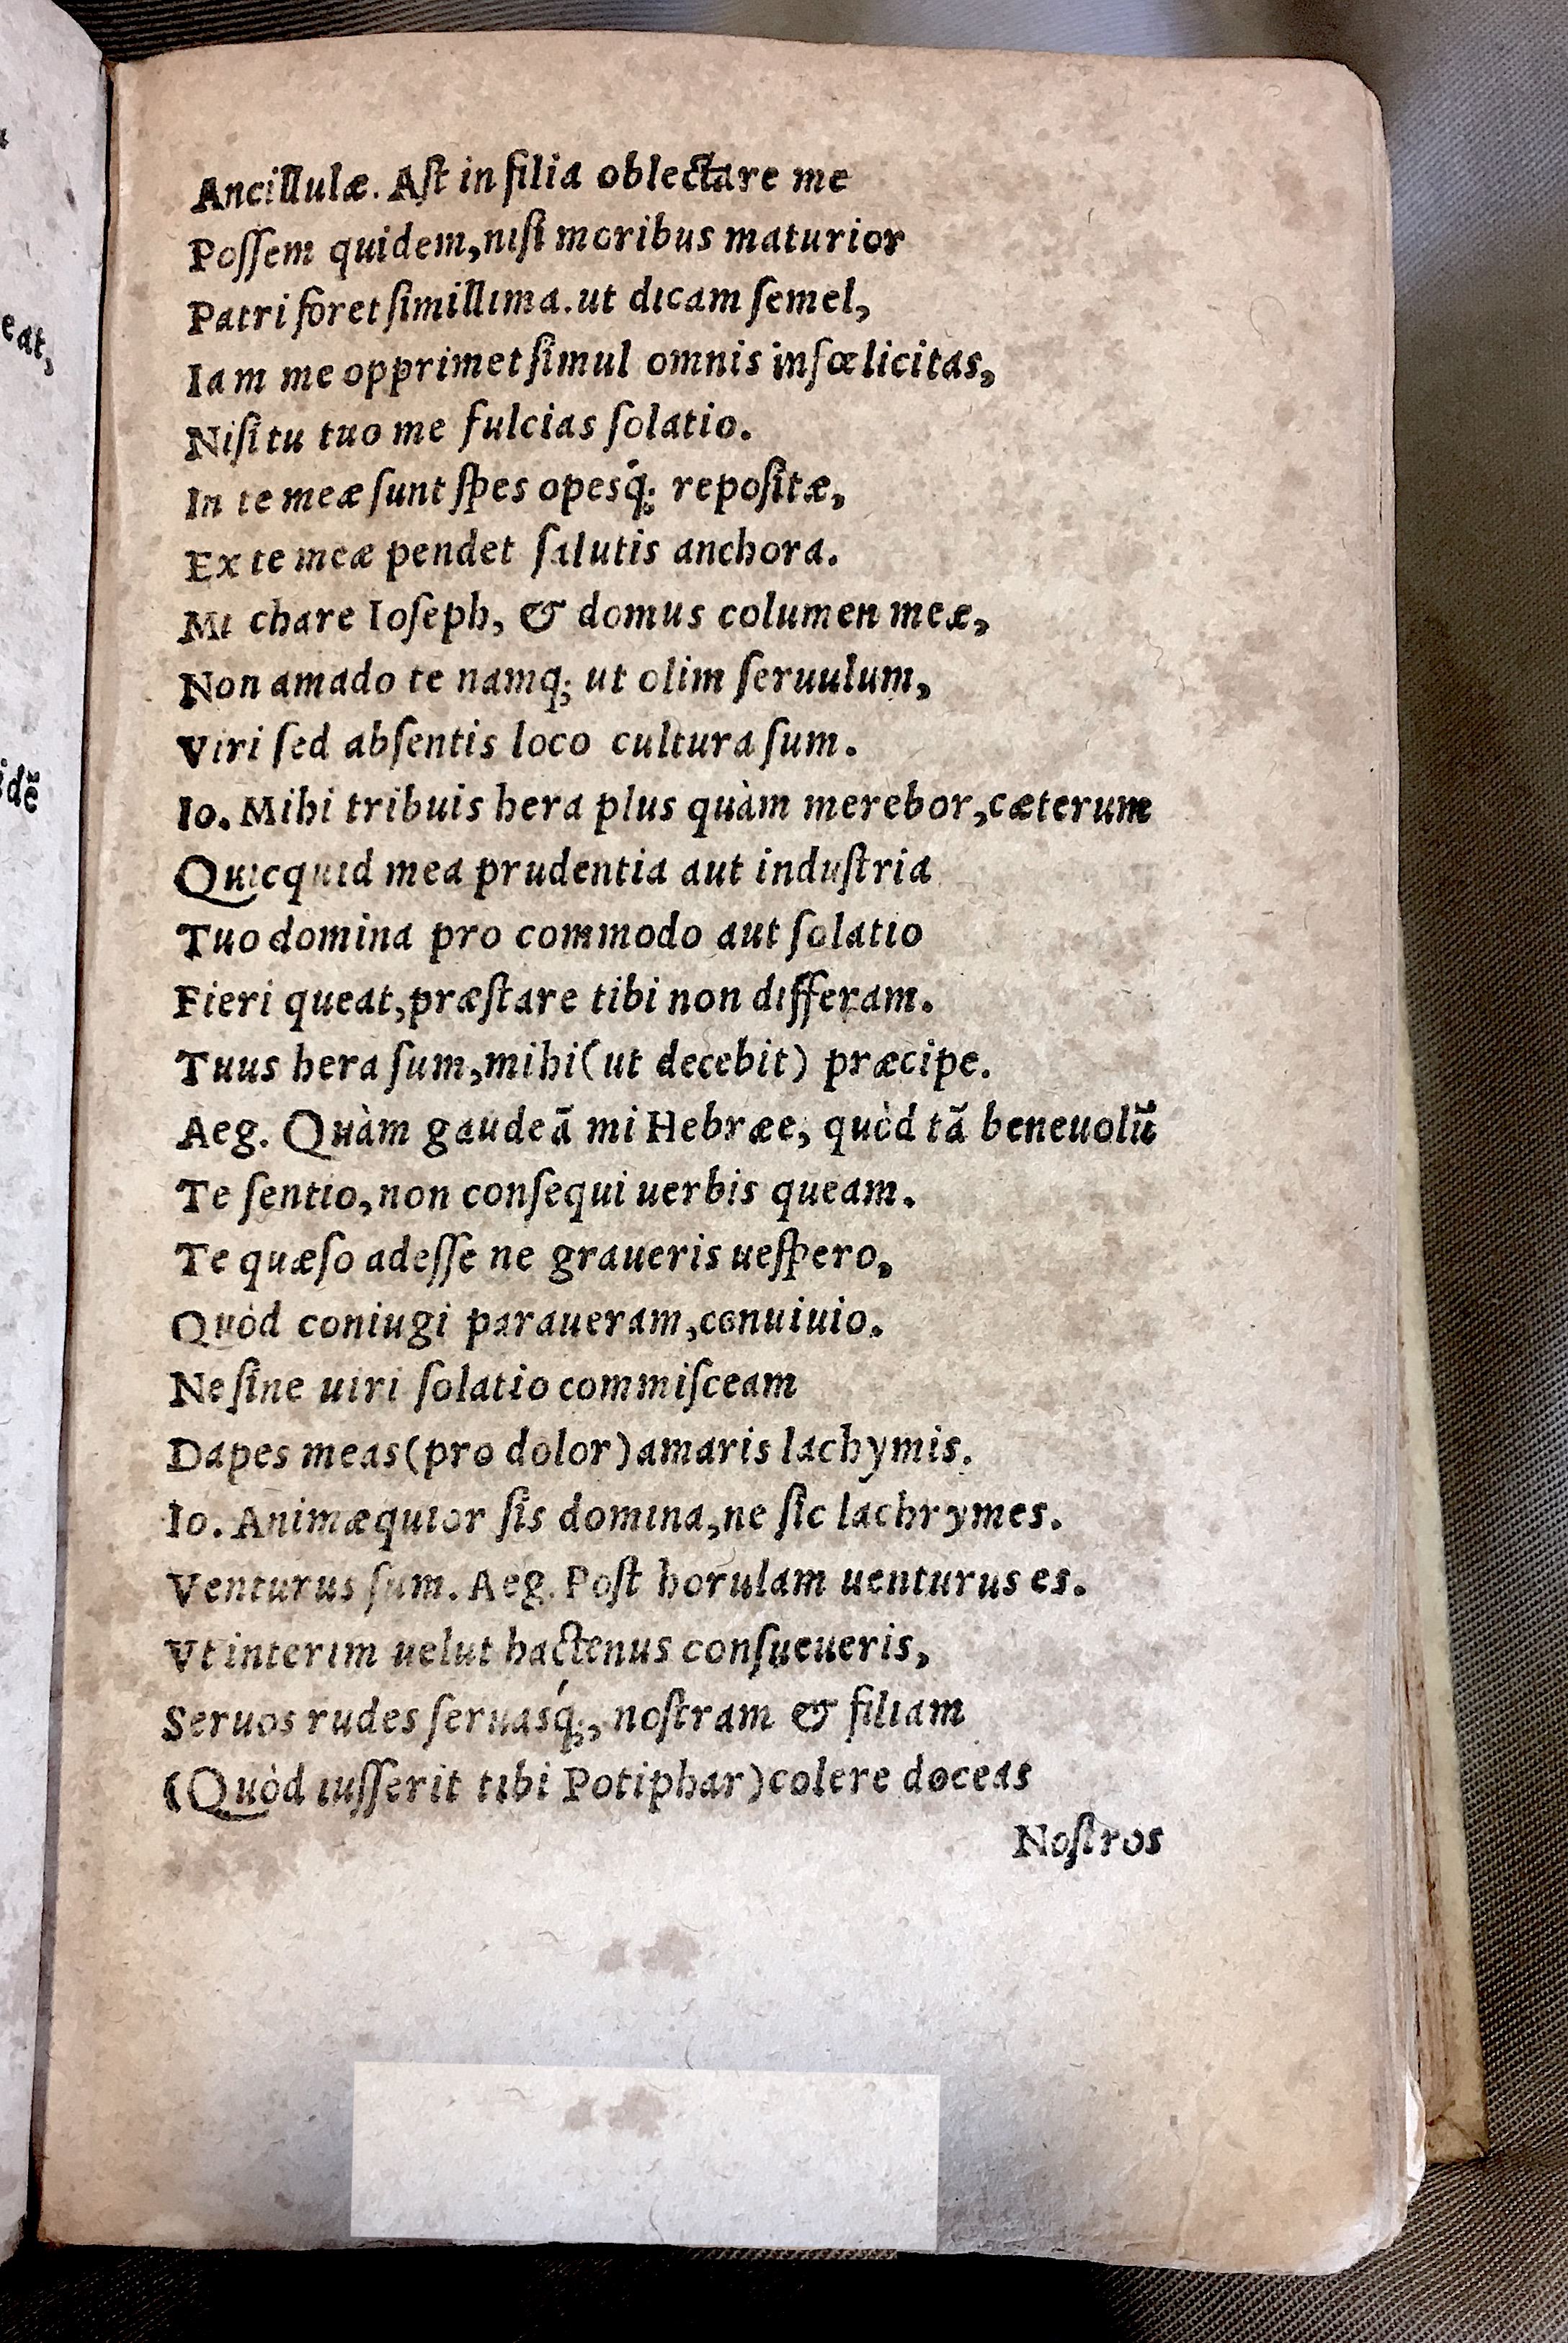 Ancillulæ. Aſt in filia oblectare me
Poſſem quidem, niſi moribus maturior
Patri foret ſimillima. ut dicam ſemel,
Iam me opprimet ſimul omnis inſœlicitas,
Niſi tu tuo me fulcias ſolatio.
In te meæ ſunt ſpes opesq́; repoſitæ,
Ex te meæ pendet ſalutis anchora.
Mi chare Ioſeph, & domus columen meæ,
Non amado te namq; ut olim ſeruulum,
Viri ſed abſentis loco cultura ſum.
Io. Mihi tribuis hera plus quàm merebor, cæterum
Quicquid mea prudentia aut induſtria
Tuo domina pro commodo aut ſolatio
Fieri queat, præſtare tibi non differam.
Tuus hera ſum, mihi (ut decebit) præcipe.
Aeg. Quàm gaudeā mi Hebræe, quòd tā beneuolū
Te ſentio, non conſequi uerbis queam.
Te quæſo adeſſe ne graueris ueſpero,
Quòd coniugi paraueram, conuiuio.
Ne ſine uiri ſolatio commiſceam
Dapes meas (pro dolor) amaris lachymis.
Io. Animæquior ſis domina, ne ſic lachrymes.
Venturus ſum. Aeg. Poſt horulam uenturus es.
Vt interim uelut hactenus conſueueris,
Seruos rudes ſeruasq́;, noſtram & filiam
(Quòd iuſſerit tibi Potiphar) colere doceas
Noſtros
eat,
idē